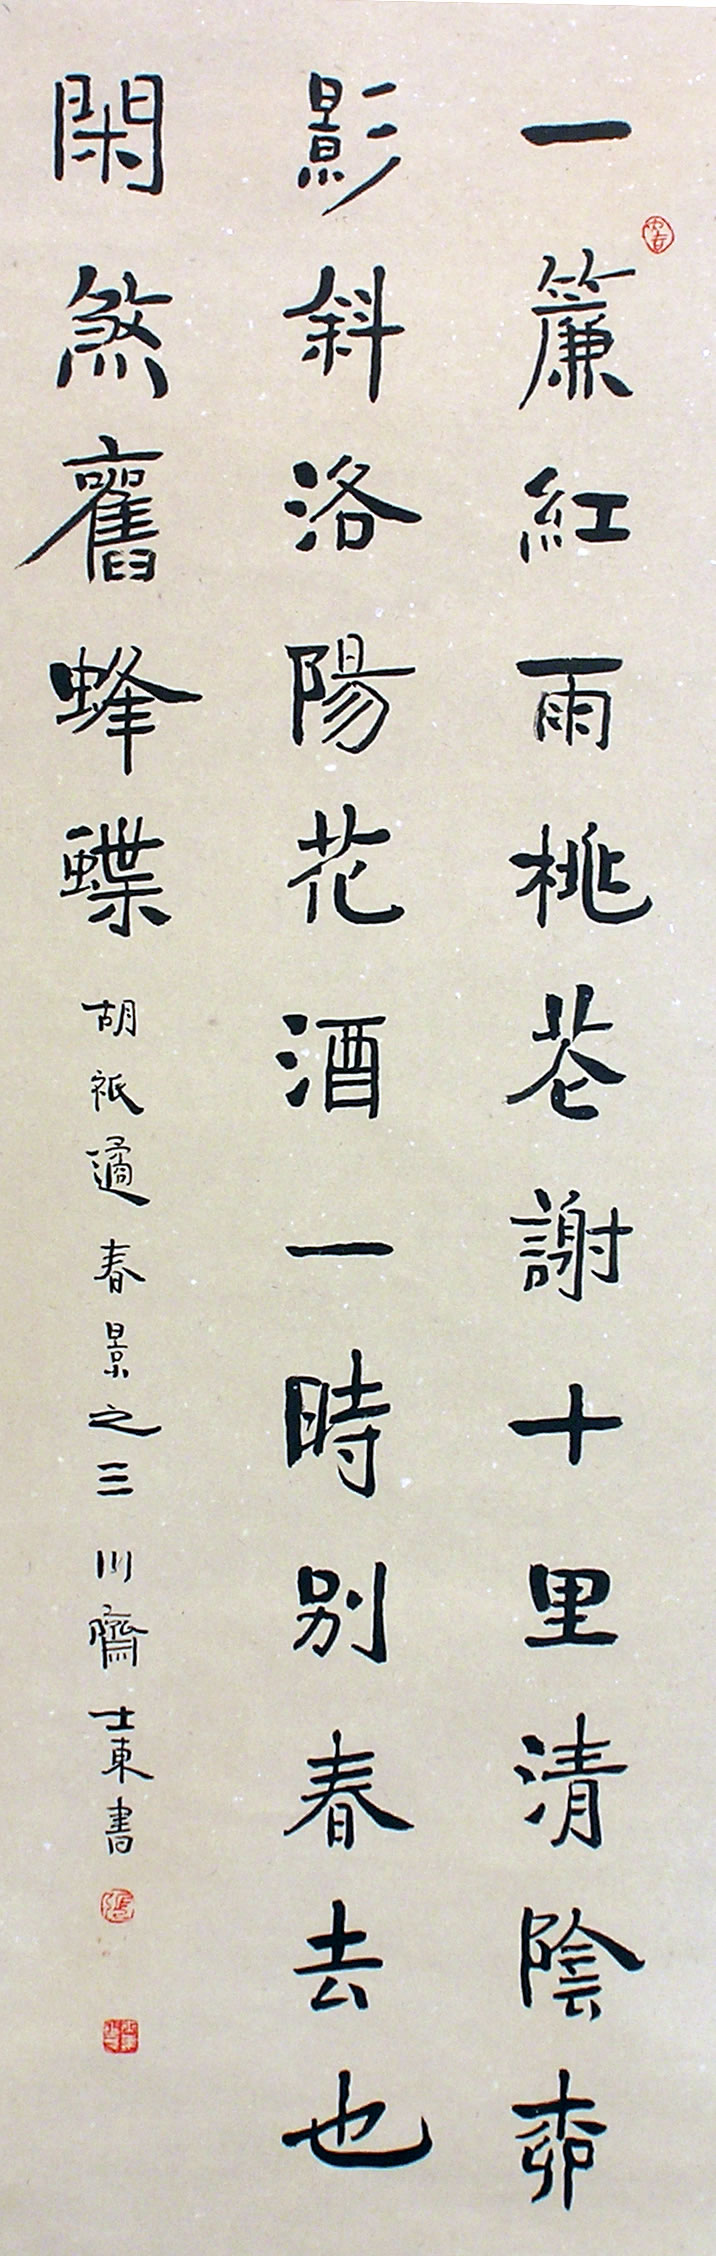 一簾紅雨桃花謝十里清陰柳
影斜洛陽花酒一時別春去也
閑煞舊蜂蝶 胡祇遹春景之三 川齋士東書